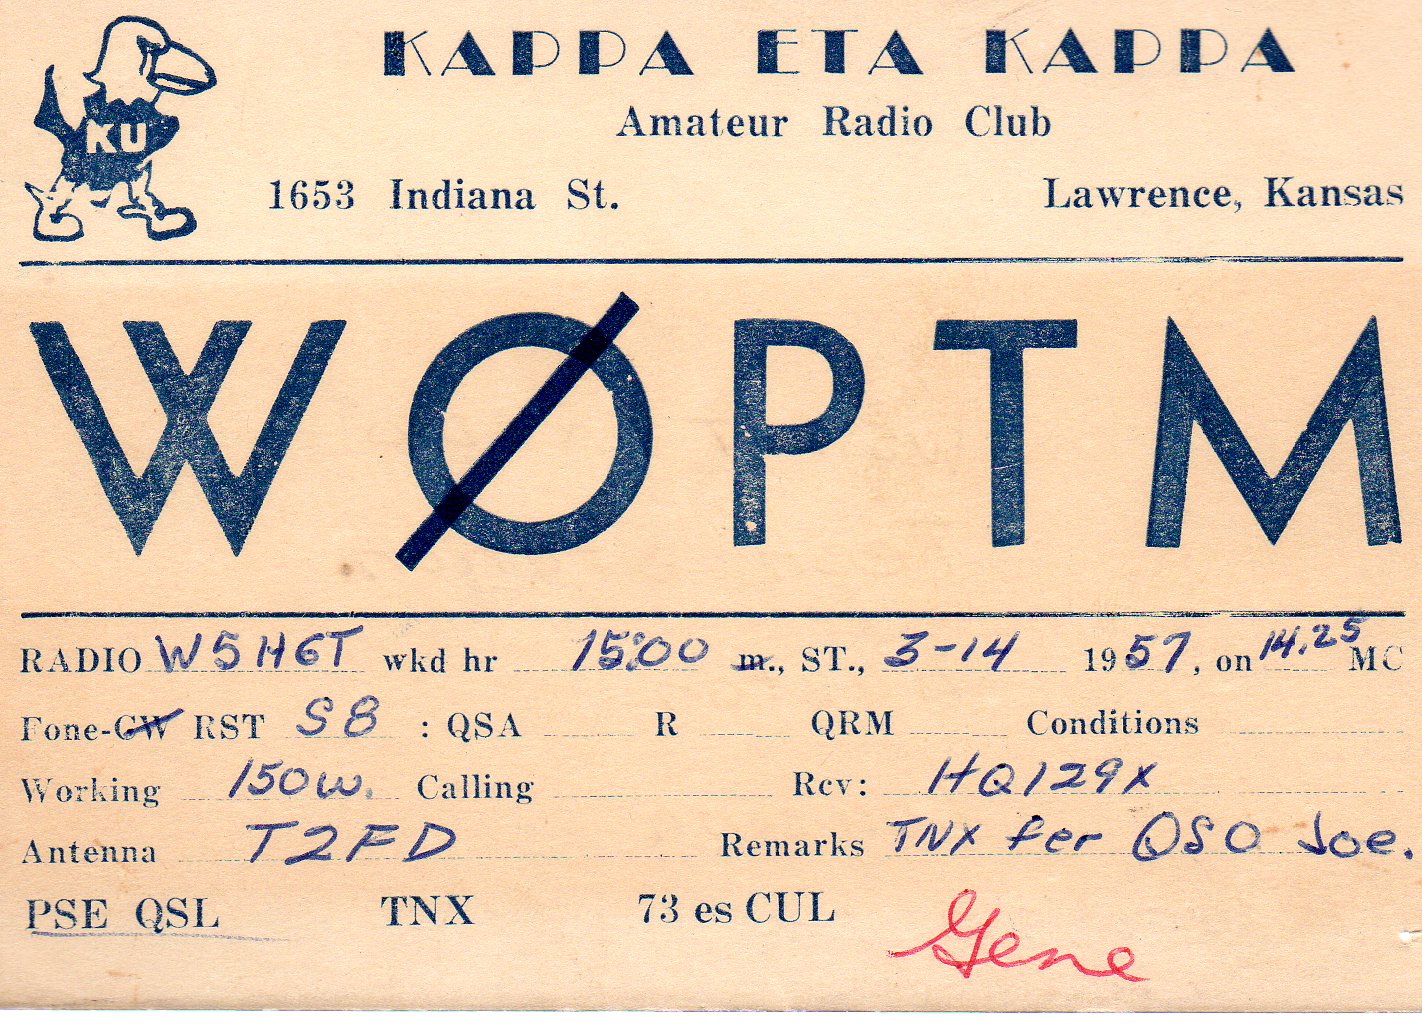 KU
KAPPA ETA KAPPA
Amateur Radio Club
1653 Indiana St. Lawrence, Kansas
WØPTM
RADIO W5HGT wkd hr 15:00 m., ST., 3-14 1957, on 14.25 MC
Fone-CW RST S8 : QSA R QRM Conditions
Working 150w. Calling Rcv: HQ129X
Antenna T2FD Remarks TNX fer QSO Joe.
PSE QSL TNX 73 es CUL
Gene